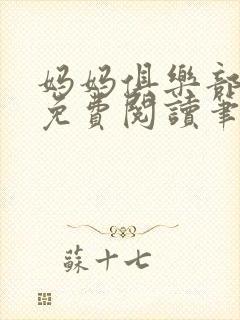 媽媽俱樂部
免費閱讀筆
蘇十七